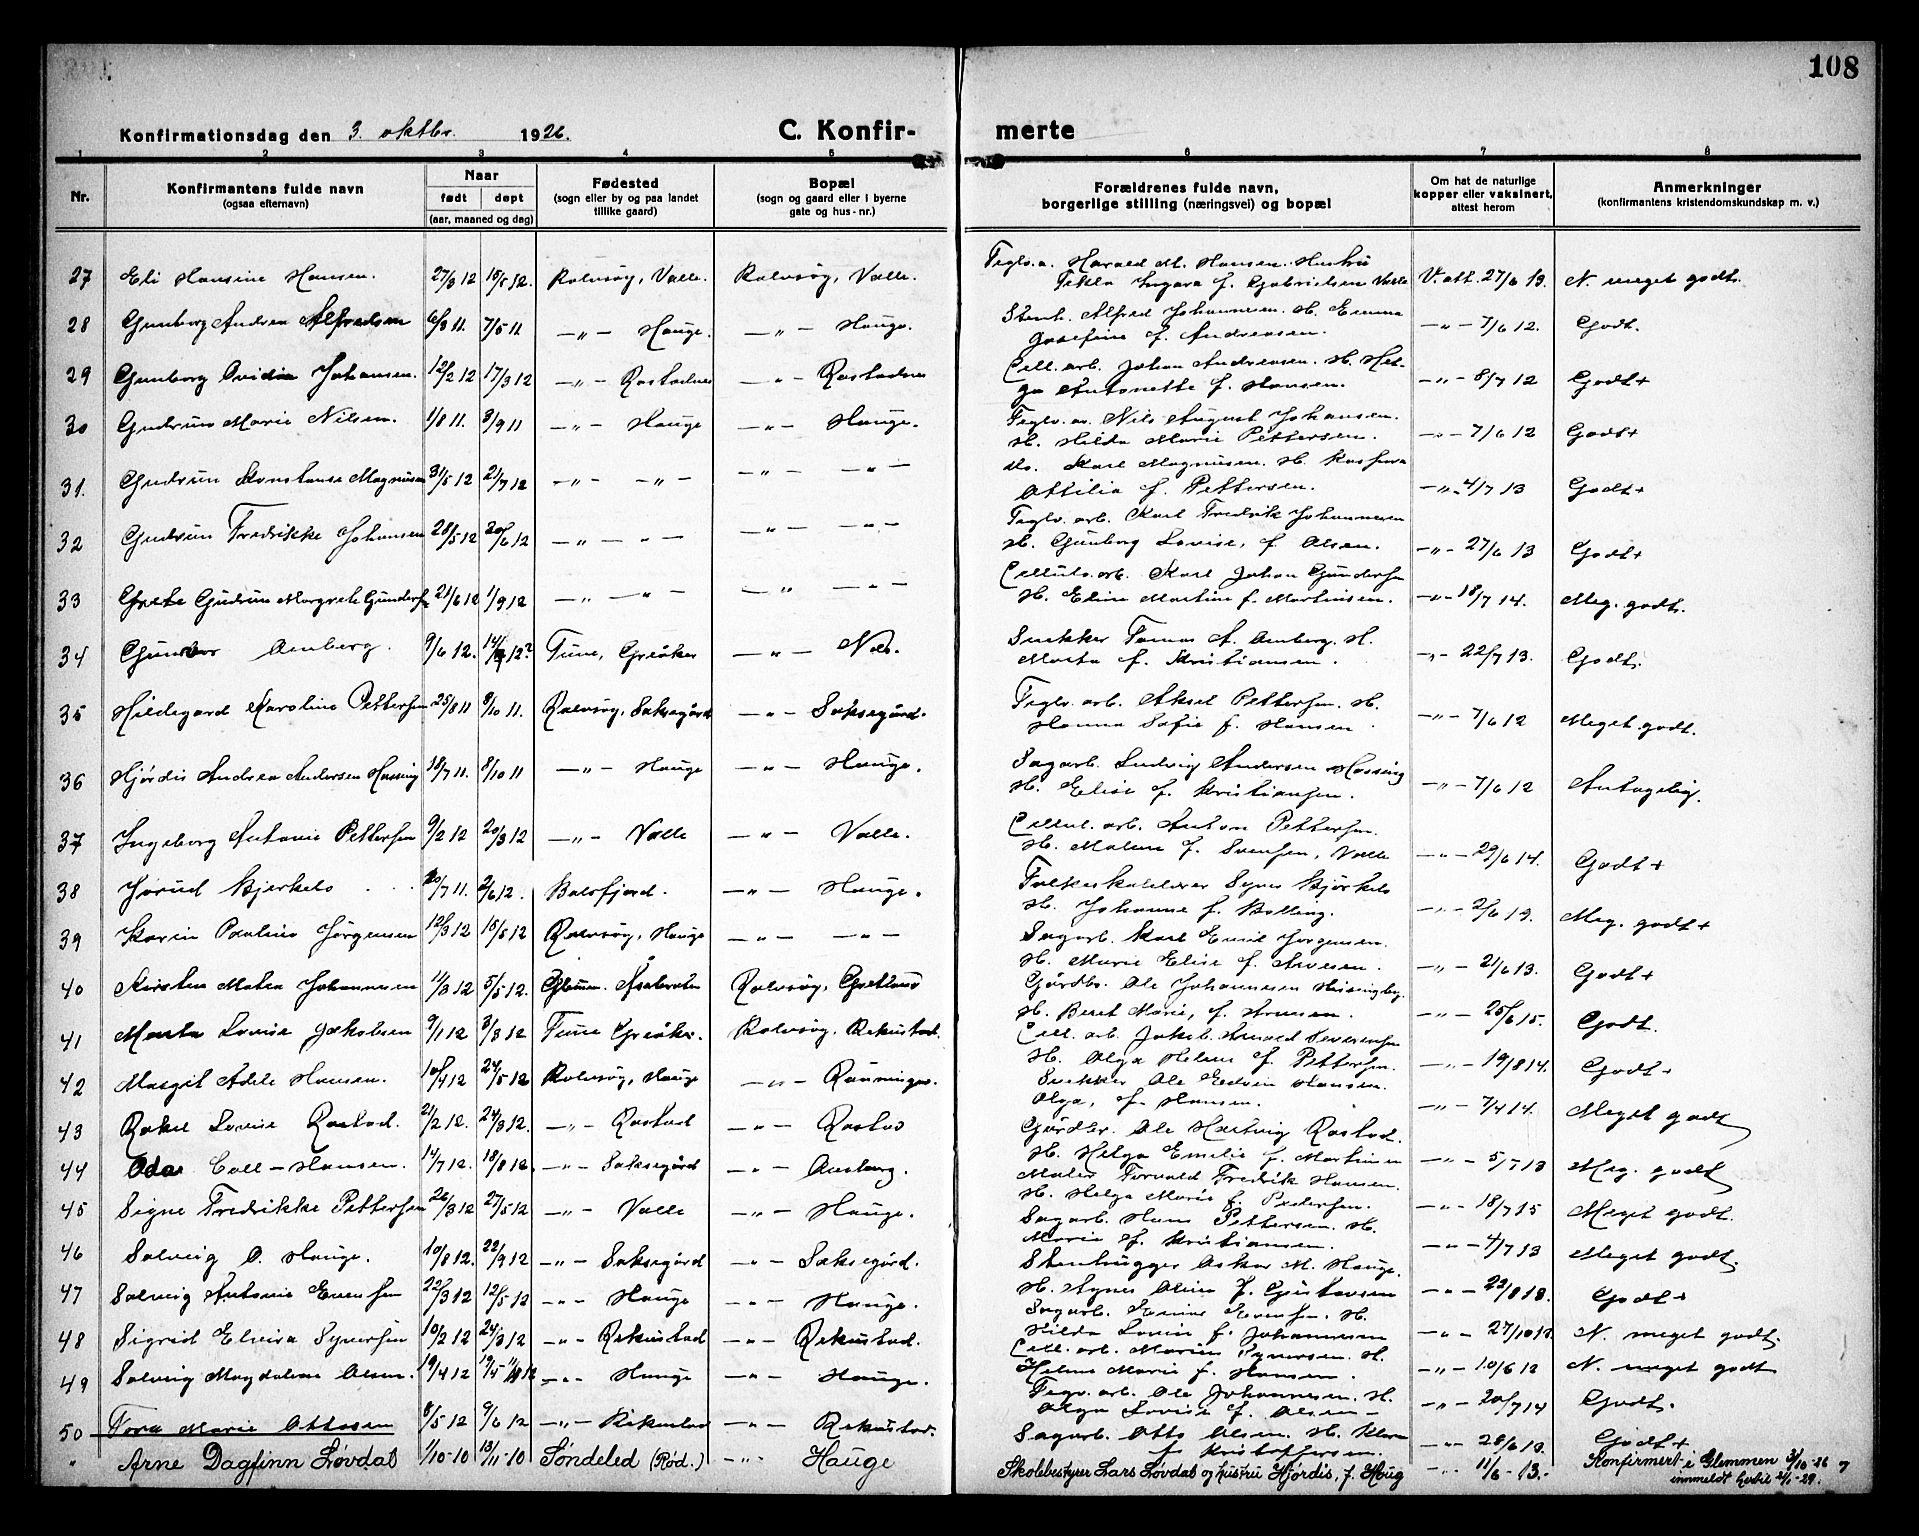 108
Konfirmationsdag den 3. oktbr. 1926. C. Konfir- merte
1 2 3 4 5 6 7 8
Nr. Konfirmantens fulde navn (ogsaa efternavn) Naar født døpt (aar, maaned og dag) Fødested (sogn eller by og paa landet tillike gaard) Bopæl (sogn og gaard eller i byerne gate og hus-nr.) Forældrenes fulde navn, borgerlige stilling (næringsvei) og bopæl Om hat de naturlige kopper eller vaksinert, attest herom Anmerkninger (konfirmantens kristendomskundskap m. v.)
27 Eli Hansine Hansen. 27/3 12 Rolvsøy, Valle. Rolvsøy, Valle. Teglv.a. Harald M. Hansen. Hustru
Tekla Ingara f. Gabrielsen Valle V. att. 27/6 13. N. meget godt.
28 Gunborg Andrea Alfredsen 6/3 11. 7/5 11 —"— Hauge. —"— Hauge. Stenh. Alfred Johannesen. H. Emma
Josefine f. Andreasen. —"— 7/6 12. Godt.
29 Gunborg Ovidia Johansen. 12/2 12 17/3 12 —"— Rostadnes —"— Rostadnes Cell. arb. Johan Andreasen. H. Hel-
ga Antonette f. Hansen. —"— 8/7 12 Godt+
30 Gudrun Marie Nilsen. 1/8 11. 3/9 11 —"— Hauge —"— Hauge. Teglv. a. Nils August Johansen.
H. Hilda Marie Pettersen. —"— 7/6 12 Godt+
31. Gudrun Konstanse Magnusen 31/5 12 21/7 12 —"— —"— —"— —"— Karl Magnusen. H.
Attilia f. Pettersen. —"— 4/7 13 Godt+
32 Gudrun Fredrikke Johansen 28/5 12 30/6 12 —"— —"— —"— —"— Teglv. arb. Karl Fredrik Johannesen
H. Gunborg Lovise, f. Olsen. —"— 27/6 13 Godt+
33 Grete Gudrun Margrete Gundersen 21/6 12 1/9 12 —"— —"— —"— —"— Cellulo. arb. Karl Johan Gundersen
H. Eline Martine f. Martinsen. —"— 18/7 14. Meg. godt.
34 Gunvor Amberg. 9/6 12. Tune, Greåker —"— Nes. Snekker Tomas A. Amberg. H.
Marta f. Kristiansen. —"— 22/7 13. Godt.
35 Hildegard Karoline Pettersen 25/8 11 8/10 11. Rolvsøy, Saksegård —"— Saksegård. Teglv. arb. Aksel Pettersen. H.
Hanna Sofie f. Hansen —"— 7/6 12 Meget godt.
36 Hjørdis Andrea Andersen Hassing 18/7 11. 8/10 11 —"— Hauge —"— Hauge. Sagarb. Ludvig Andersen Hassing
H. Elise f. Kristiansen. —"— 7/6 12 Antagelig.
37 Ingeborg Antonie Pettersen 9/2 12 20/3 12 —"— Valle —"— Valle. Cellul. arb. Anton Pettersen.
H. Malene f. Svensen, Valle —"— 29/6 14. Godt+
38 Jorud Bjerkelo 20/7 11. 2/6 12. Balsfjord. —"— Hauge. Folkeskolelærer Bjørkelo
H. Johanne f. —"— 2/6 19. Meg. godt+
39 Karin Pauline Jørgensen 12/3 12 Rolvsøy, Hauge —"— —"— Sagarb. Karl Emil Jørgensen.
H. Marie Elise f. —"— 21/6 13. Godt+
40 Kirsten Matea Johannesen 11/3 12 5/5 12. Rolvsøy, Gretland Gårdbr. Ole Johannesen
H. Beret Marie, f. —"— 25/6 15. Godt.
41 Marta Lovise Jakobsen 9/1 12 3/3 12 Tune Greåker. Rolvsøy, Rekustad. Cell. arb. Jakob Arnold Severinsen
H. Olga Helene f. Pettersen. —"— 19/8 14. Godt+
42 Margit Adele Hansen. 10/4 12 24/5 12 Rolvsøy, Hauge —"— Rønningen. Snekker Ole Edvin Hansen.
Olga, f. Hansen. —"— 7/4 14. Meget godt
43 Rakel Lovise Rostad. 21/2 12. 24/3 12. —"— Rostad —"— Rostad Gårdbr. Ole Hartvig Rostad.
H. Helga Emilie f. Martinsen —"— 5/7 13 Meg. godt
44 Oda Coll-Hansen. 14/7 12. 18/8 12. —"— Saksegård —"— Maler Torvald Fredrik Hansen.
H. Helga Marie f. Pedersen. —"— 18/7 15 Meget godt.
45 Signe Fredrikke Pettersen 26/3 12 27/5 12 —"— Valle —"— Hauge. Sagarb. Hans Pettersen. H.
Marie f. Kristiansen. —"— 4/7 13 Meget godt.
46 Solveig O. Hauge. 10/8 12. 22/9 12 —"— Saksegård —"— Saksegård. Stenhugger Oskar M. Hauge.
H. Agnes Oline f. Gustavsen —"— 22/8 18. Godt+
47 Solveig Antonie Evensen 22/3 12 12/5 12 —"— Hauge —"— Hauge. Sagarb. Evensen. H.
Hilda Lovise f. Johannesen —"— 27/10 13. N. meget godt.
48 Sigrid Elvira Syversen 10/2 12 24/3 12 —"— Rekustad —"— Rekustad. Cell. arb. Marius Syversen. H.
Helene Marie f. Hansen. —"— 10/6 12 N. meget godt
49 Solveig Magdalene Olsen. 19/4 12 —"— Hauge —"— Hauge. Tegv. arb. Ole Johannesen. H.
Olga Lovise f. Olsen — —"— 20/7 14 Godt.
50 Tora Marie Ottosen 8/5 12 9/6 12 —"— Rekustad —"— Rekustad. Sagarb. Otto Olsen. H. Klara
f. Kristoffersen. —"— 28/6 13. Godt+
" Arne Dagfinn Løvdal 1/10-10 13/11-10 Søndeled (Rød.) —"— Hauge Skolebestyrer Lars Løvdal og hustru Hjørdis, f. Houg —"— 11/6-13.- Konfirmert i Glemmen 3/10-26
innmeldt hertil 2/1-29.